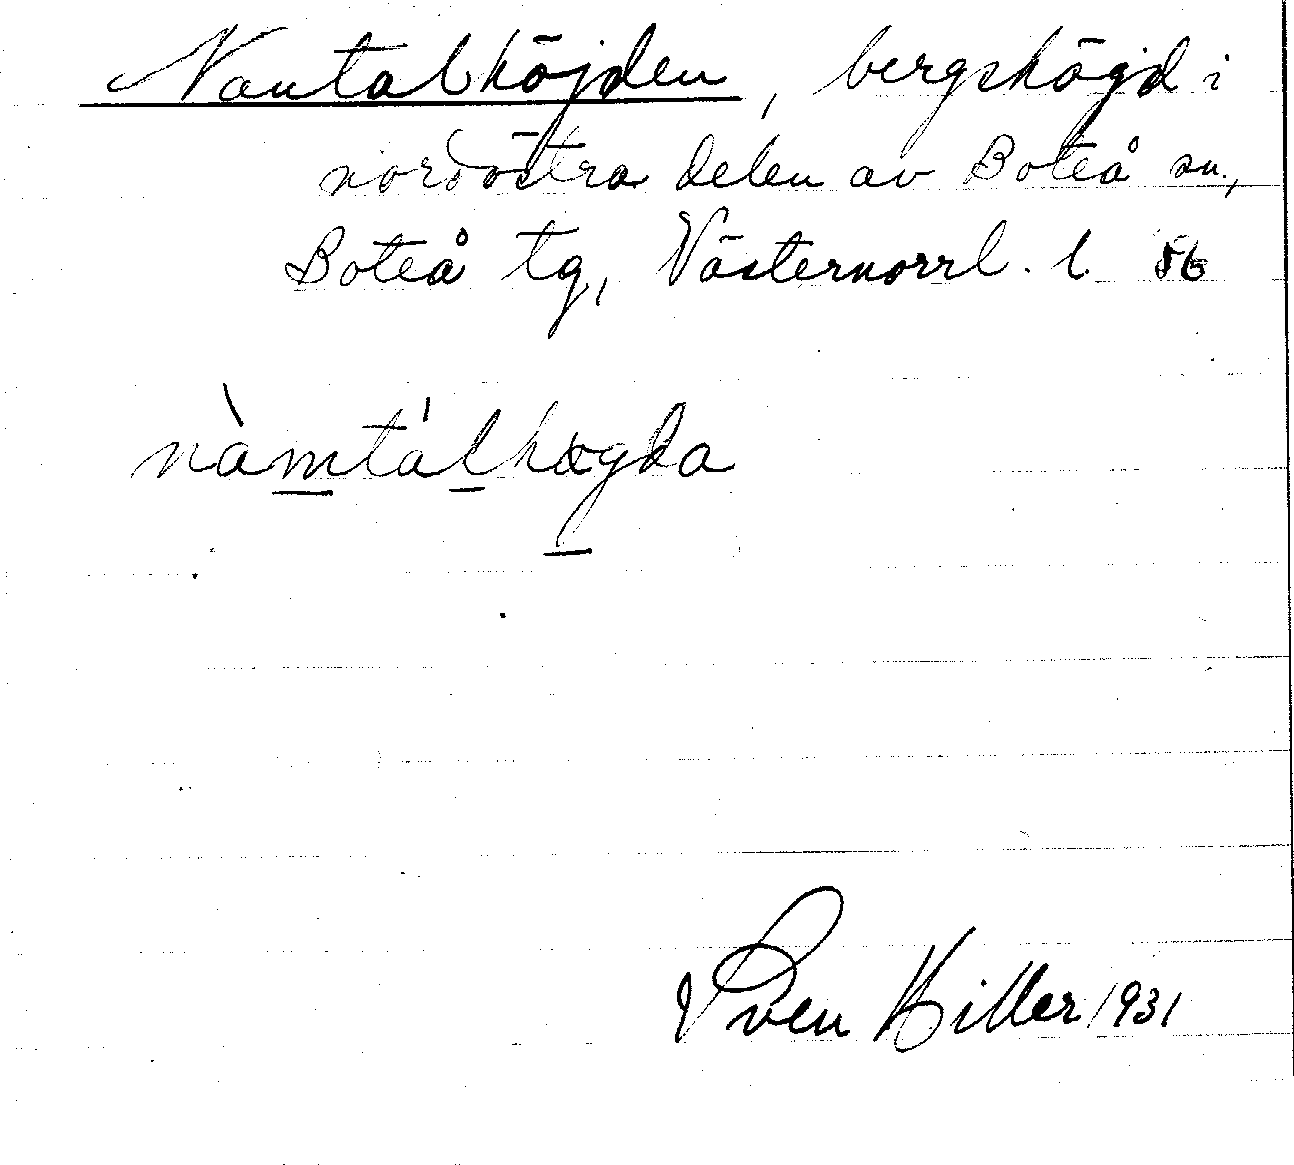 Nantalhöjden, bergshöjd i
nordöstra delen av Boteå sn.,
Boteå tg, Västernorrl. l. 86
nàmtálhøgda
Sven Hiller 1931